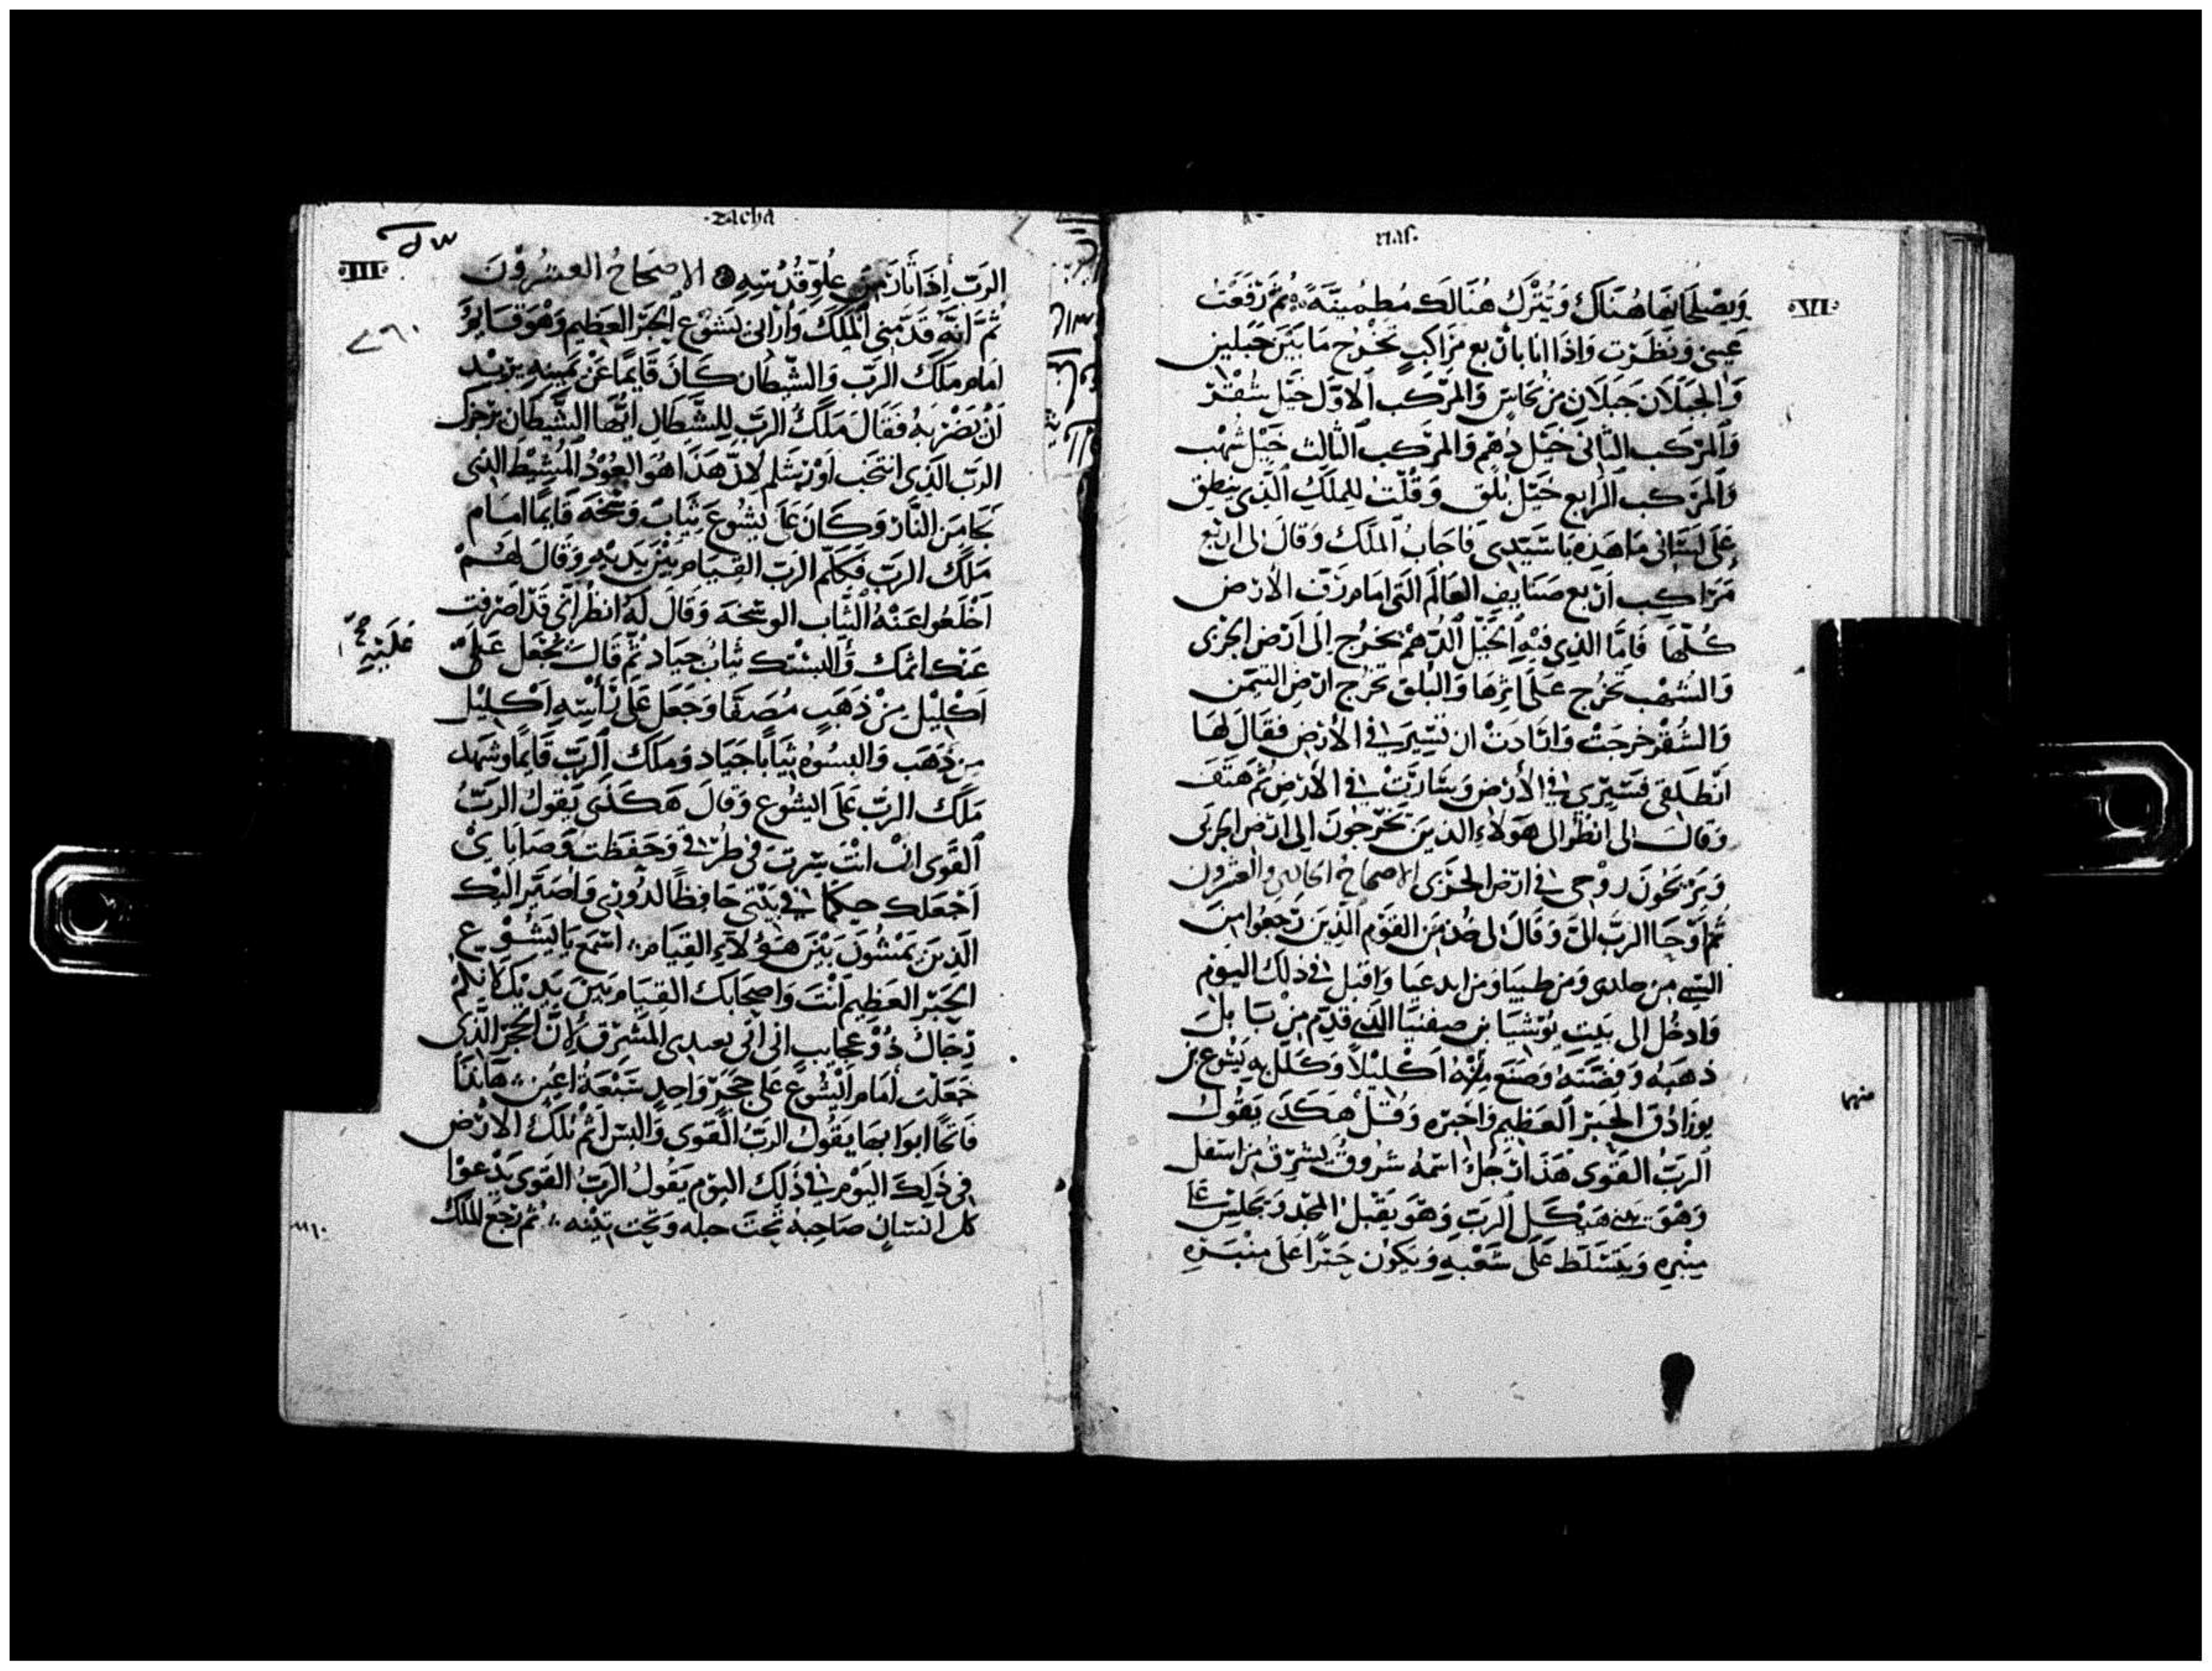 ·zacha
·III·
الرَبّ إِذَا ثَارَ مِنْ عُلُوِّ قُدْسِهِ الاصحَاحُ العِشرُوْنَ
ثُمَّ انَّه قَدَّمَنِي المَلَكُ وَأَرَانِي يَشُوْع الحَبْرَ العَظِيم وَهْوَ قَايِمٌ
امَامِ مَلَكِ الرَبّ وَالشَّيْطَان كَانَ قَايِمًا عَنْ يَمِينِهِ يُرِيْد
اَنْ يَضُرّ بِهِ فَقَالَ مَلَكُ الرَبّ لِلشَّيْطَان ايُّهَا الشَّيْطَان يَزْجُرك
الرَبّ الَّذِي انتَخَبَ اوْرِشَلِم لانَّ هَذَا هُوَ العُوْدُ المُشِيْط الذِي
نَجَا مِنَ النَّار وَكَانَ عَلَى يَشُوعَ ثِيَابٌ وَسِخَه قَايِمًا امَام
مَلَكِ الرَبّ فَكَلَّمَ الرَبّ القِيَام بَيْنَ يَدَيْهِ وَقَالَ لَهُمْ
اَخْلَعُوا عَنْهُ الثِّيَاب الوَسِخَه وَقَالَ لَهُ انْظُر انِّي قَدْ اصْرَفت
عَنْك اثمك وَأَلبَسْتك ثِيَابٌ جِيَاد ثُمَّ قَالَ يُجْعَل عَلَى
عَلَيْهِ
اَكْلِيْل مِنْ ذَهَبٍ مُصَفَّا وَجَعَل عَلَى رَأسِهِ اَكْلِيْل
مِن ذَهَب وَالبسُوهُ ثِيَابًا جِيَاد وَمَلَكُ الرَبّ قَايِمًا وشَهِد
مَلَك الرَبّ عَلَى ايشُوع وَقَالَ هَكَذَى يَقُولُ الرَبّ
القَوِي انْ انْتَ سِرْتَ في طُرُقي وَحَفِظتَ وَصَايَايْ
اَجْعَلك حكمًا في بَيْتِي حَافِظًا لدُوْرِي وَاصَيّر اليْك
الذِينَ يَمْشُونَ بَيْنَ هَؤُلَاءِ القِيَام اسْمَع يَا يَشُوْع
الحَبْر العَظِيم انْتَ وَاصحَابك القِيَام بَيْنَ يَدَيْك لانَّكُمْ
رِجَالٌ ذُوْ عَجَايِب انِّي اتي بعبدي المَشرِق لِانَّ الحَجَر الَّذِي
جَعَلت أمَام ايْشُوع عَلَى حَجَرٍ وَاحِد سَبْعَة اعْيُن هَا انَا
فَاتِحًا ابوَابهَا يَقُولُ الرَبّ القَوِي وَالمس اثْم تلْكَ الارْض
في ذَلِكَ اليَوْم في ذَلِكَ اليَوْم يَقُولُ الرَبّ القَوِي يَدْعُوْا
كل انسَانٍ صَاحِبهُ تَحْتَ حبله وَتَحْت تِيْنِه ثم رَجَعَ المَلَك
rias·
·VI·
وَيصْلحَانهَا هُنَاكَ وَيُتْرَك هُنَالِك مُطمْيِنَّةً ثُمَّ رَفَعْتُ
عَيْنِي وَنَظَرْت وَاذَا انَا بأرْبَع مَرَاكِبٍ تَخْرُج مَا بَيْنَ جَبَلَيْن
وَالجَبَلَان جَبَلَانِ مِنْ نُحَاسٍ وَالمَرْكَب الأوّل خَيْل شُقْرٌ
وَالمَرْكَب الثَانِي خَيْل دُهْم وَالمَرْكَب الثَالِث خَيْل شُهْب
وَالمَرْكَب الرَابِع خَيْل بُلْق وَقُلْتُ لِلْمَلَكِ الَّذِي يَنطِق
عَلَى لِسَانِي مَا هَذِهِ يَا سَيِّدِي فَاجَابَ المَلَك وَقَالَ لي ارْبَع
مَرَاكِب ارْبَع صَنَايِف العَالَم الَتِي امَام رَبّ الارْض
كُلّهَا فَامَّا الذِي فِيْهِ الخَيْل الدُّهْمِ تخرُج الَى ارْض الجِرْبِي
وَالشُهْب تَخْرُج عَلَى اثَرِهَا وَالبُلْق تخْرُج ارْض التيْمن
وَالشُقْر خَرَجَتْ وَارَادَتْ ان تَسِيْر في الأرْض فَقَالَ لهَا
انْطَلِقي فَسِيْرِي في الأرْض وَسَارَتْ في الأرْض ثُمَّ هَتَفَ
وَقَالَ لي انظُر الى هَوْلَاءِ الذِينَ يَخْرُجُونَ إلَى ارْض الجِرْبِي
وَيَرِيْحُونَ رُوْحي في ارْض الجِرْبِي الاصحَاحُ الحَادِي وَالعشرُون
ثُمَّ اوْحَا الرَبّ اليَّ وَقَالَ لي خُذ مِنَ القَوْم الَّذِينَ رَجَعُوا مِنَ
السَّبي من حلدي وَمِن طبيَا وَمن ايدعيَا وَاقبل في ذلِكَ اليَوْم
وَادخُل الى بَيْتِ يُوْشِيَا بن صفنيَا الذِي قَدِم مِنْ بَابل
ذهبَهُ وَفِضَّتَهُ وَصَنَعَ مِنْهُ اَكْلِيْلًا وَكَلِّل بِه يَشُوع بن
منهما
يوزَادَق الحَبْر العَظِيم وَاخبره وَقُلْ هَكَذَى يَقُولُ
الرَبُّ القَوِي هَذَا رَجُل اسْمُهُ شَرُوق يُشْرِقُ مِن اسْفَل
وَهْوَ يَبْنِي هَيْكَل الرَبّ وَهْوَ يَقْبَل المَجْد وَيَجْلِسُ عَلَى
مِنْبَرِه وَيَتَسَلَّط عَلَى شَعْبِهِ وَيَكُونُ حَبْرًا عَلَى مِنْبَرِهِ